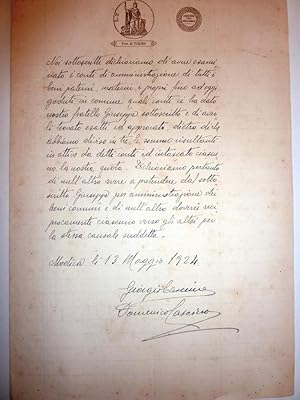 Noi sottoscritti dichiariamo di avere esami
nato i conti di amministrazione di tutti i
beni paterni, materni, e propri fino ad oggi
goduti in comune quali conti ci ha dato
nostro fratello Giuseppe sottoscritto e di aver
li trovato esatti ed approvato, dietro di che
abbiamo diviso in tre le somme risultanti
in attivo da detti conti ed intascato ciascu
no la nostra quota. Dichiariamo pertanto
di null'altro avere a pretendere dal sotto
scritto Giuseppe per amministrazione dei
beni comuni e di null'altro doverci re
ciprocamente ciascuno verso gli altri per
la stessa causale suddetta.
Modica li 13 Maggio 1924
Giorgio Cascino
Domenico Cascino